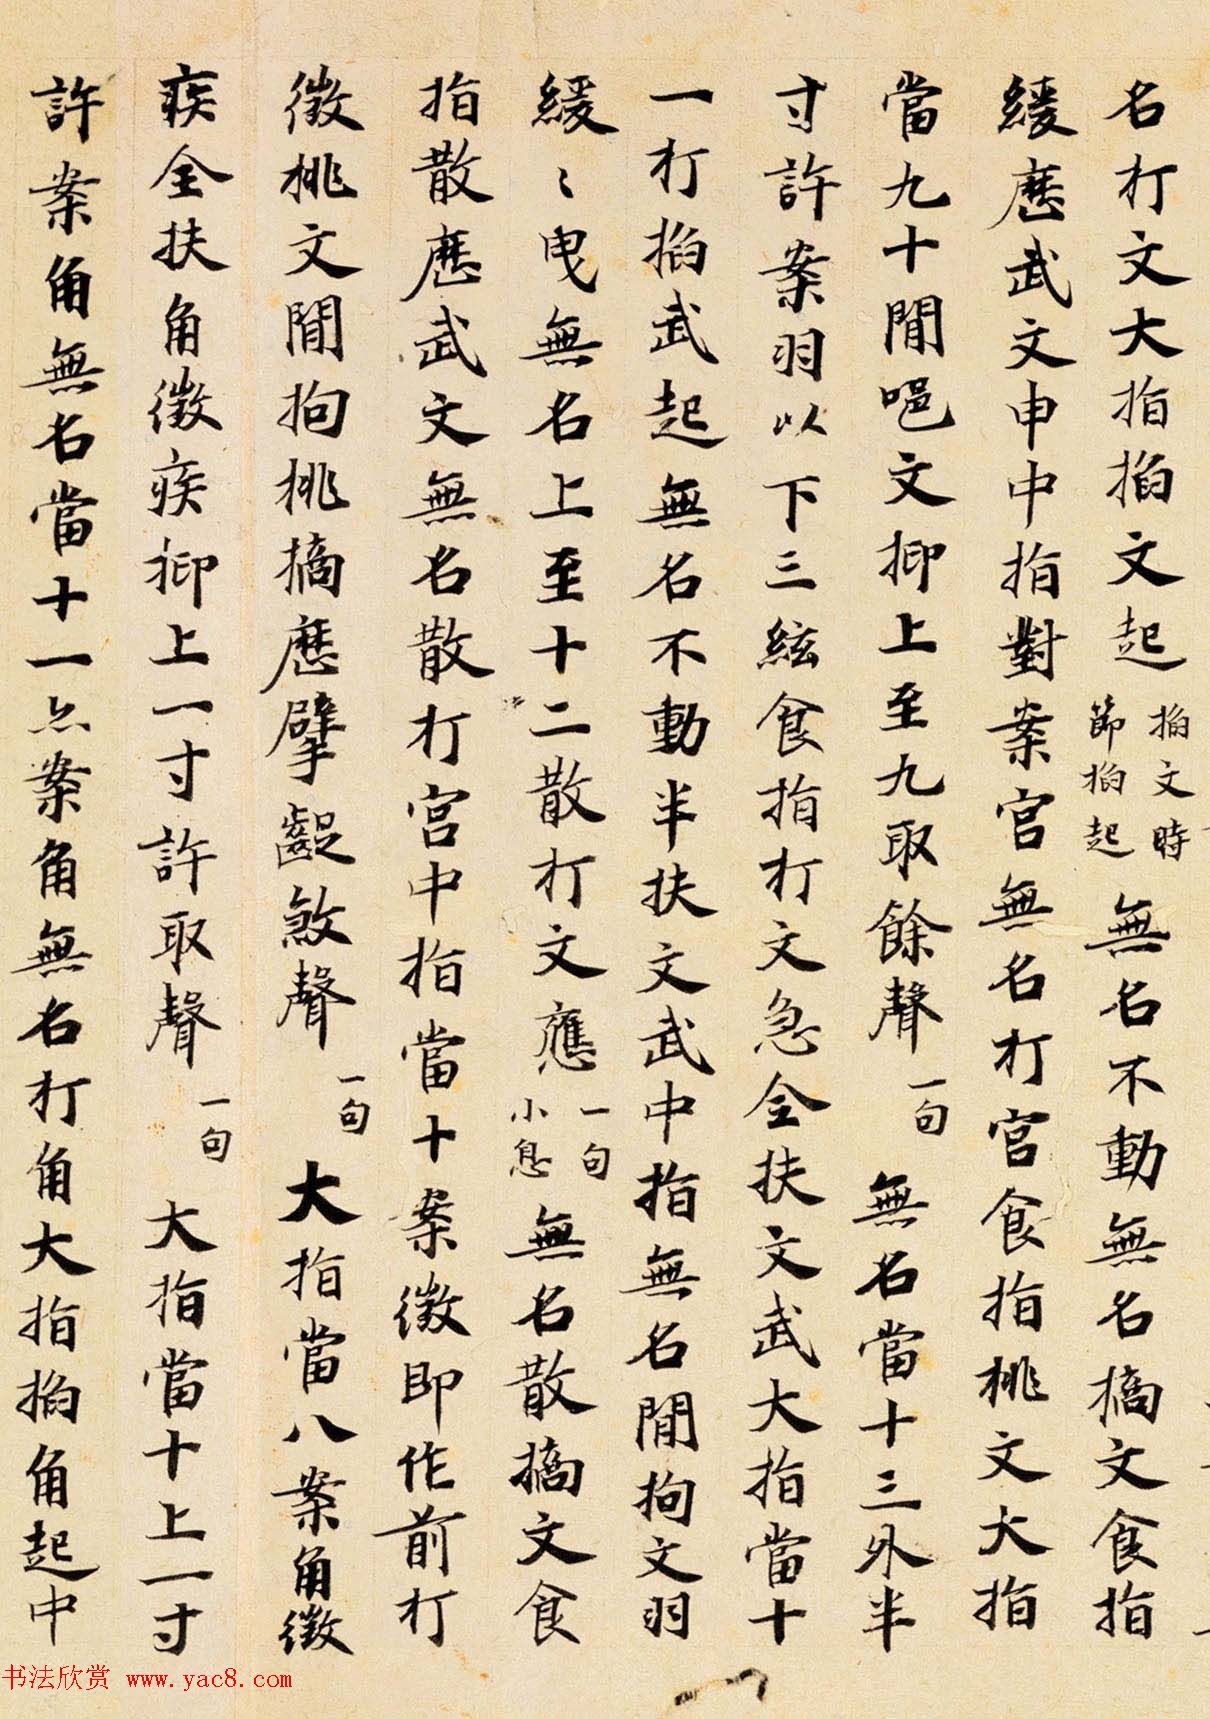 名打文大指掐文起掐文時節掐起無名不動無名擿文食指
緩歷武文申中指對案宮無名打宮食指挑文大指
當九十間吧文抑上至九取餘聲一句無名當十三外半
寸許案羽以下三絃食指打文急全扶文武大指當十
一打掐武起無名不動半扶文武中指無名間拘文羽
緩〻曳無名上至十二散打文應一句小息無名散擿文食
指散歷武文無名散打宮中指當十案徵即作前打
徵挑文間拘挑擿歷擘齪煞聲一句大指當八案角徵
疾全扶角徵疾抑上一寸許取聲一句大指當十上一寸
許案角無名當十一亦案角無名打角大指掐角起中
书法欣赏 www.yac8.com